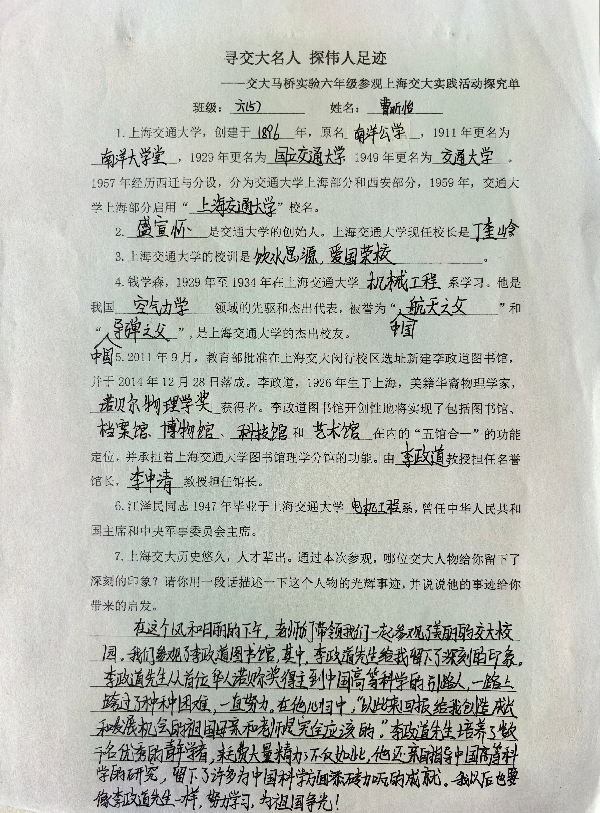 寻交大名人 探伟人足迹
——交大马桥实验六年级参观上海交大实践活动探究单
班级：六(5) 姓名：曹昕怡
1.上海交通大学，创建于1896年，原名南洋公学，1911年更名为
南洋大学堂，1929年更名为国立交通大学 1949年更名为交通大学。
1957年经历西迁与分设，分为交通大学上海部分和西安部分，1959年，交通大
学上海部分启用“上海交通大学”校名。
2.盛宣怀是交通大学的创始人。上海交通大学现任校长是丁奎岭
3.上海交通大学的校训是饮水思源，爱国荣校。
4.钱学森，1929年至1934年在上海交通大学机械工程系学习。他是
我国空气力学领域的先驱和杰出代表，被誉为“中国航天之父”和
“中国导弹之父”，是上海交通大学的杰出校友。
5.2011年9月，教育部批准在上海交大闵行校区选址新建李政道图书馆，
并于2014年12月28日落成。李政道，1926年生于上海，美籍华裔物理学家，
诺贝尔物理学奖获得者。李政道图书馆开创性地将实现了包括图书馆、
档案馆、博物馆、科技馆和艺术馆在内的“五馆合一”的功能
定位，并承担着上海交通大学图书馆理学分馆的功能。由李政道教授担任名誉
馆长，李中清教授担任馆长。
6.江泽民同志1947年毕业于上海交通大学电机工程系，曾任中华人民共和
国主席和中央军事委员会主席。
7.上海交大历史悠久，人才辈出。通过本次参观，哪位交大人物给你留下了
深刻的印象？请你用一段话描述一下这个人物的光辉事迹，并说说他的事迹给你
带来的启发。
在这个风和日丽的下午，老师们带领我们一起参观了美丽的交大校
园。我们参观了李政道图书馆，其中，李政道先生给我留下了深刻的印象。
李政道先生从首位华人诺贝尔奖得主到中国高等科学的引路人，一路上
跨过了种种困难，一直努力，在他心目中，“以此来回报给我创造成长
和发展机会的祖国母亲和老师是完全应该的。”李政道先生培养了数
千名优秀的青年学者，耗费大量精力；不仅如此，他还亲自指导中国高等科
学的研究，留下了许多为中国科学方面添砖加瓦的成就。我以后也要
像李政道先生一样，努力学习，为祖国争光！